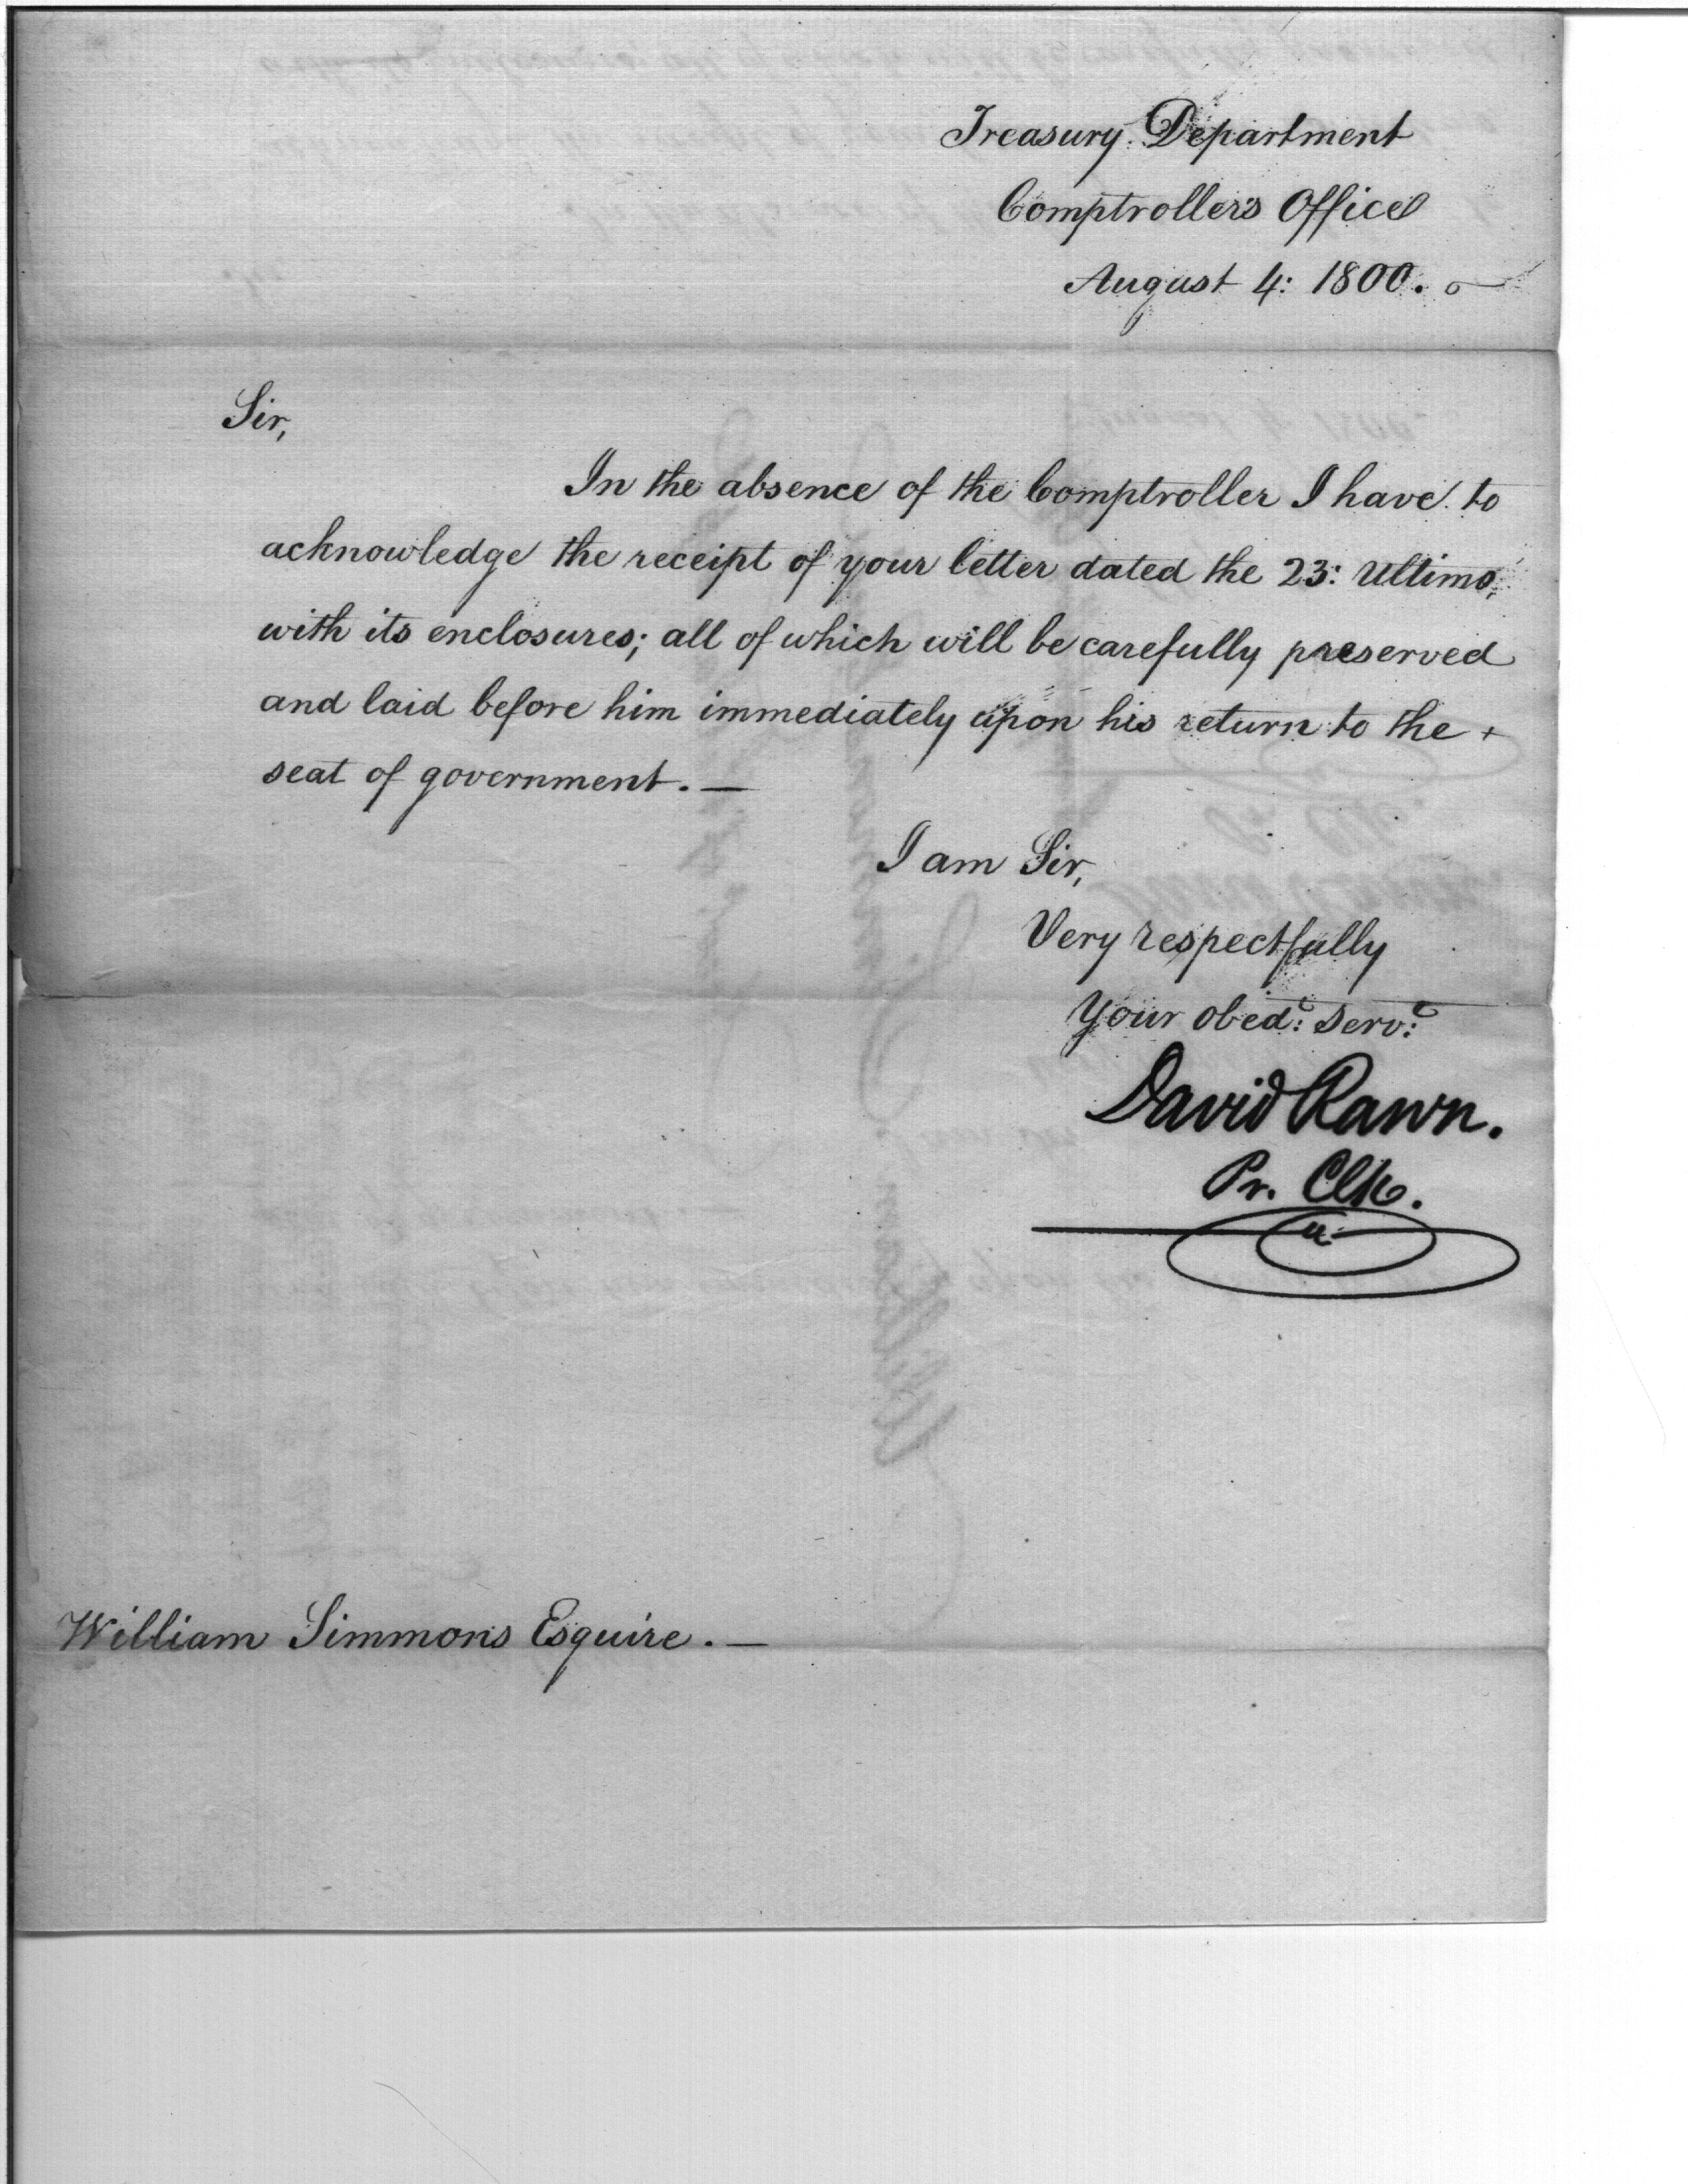 Treasury Department
Comptroller's Office
August 4: 1800.
Sir,
In the absence of the Comptroller I have to
acknowledge the receipt of your letter dated the 23: Ultimo,
with its enclosures; all of which will be carefully preserved
and laid before him immediately upon his return to the
seat of government. —
I am Sir,
Very respectfully
Your obed:t Serv:t
David Rawn.
Pr. Clk.
William Simmons Esquire. —